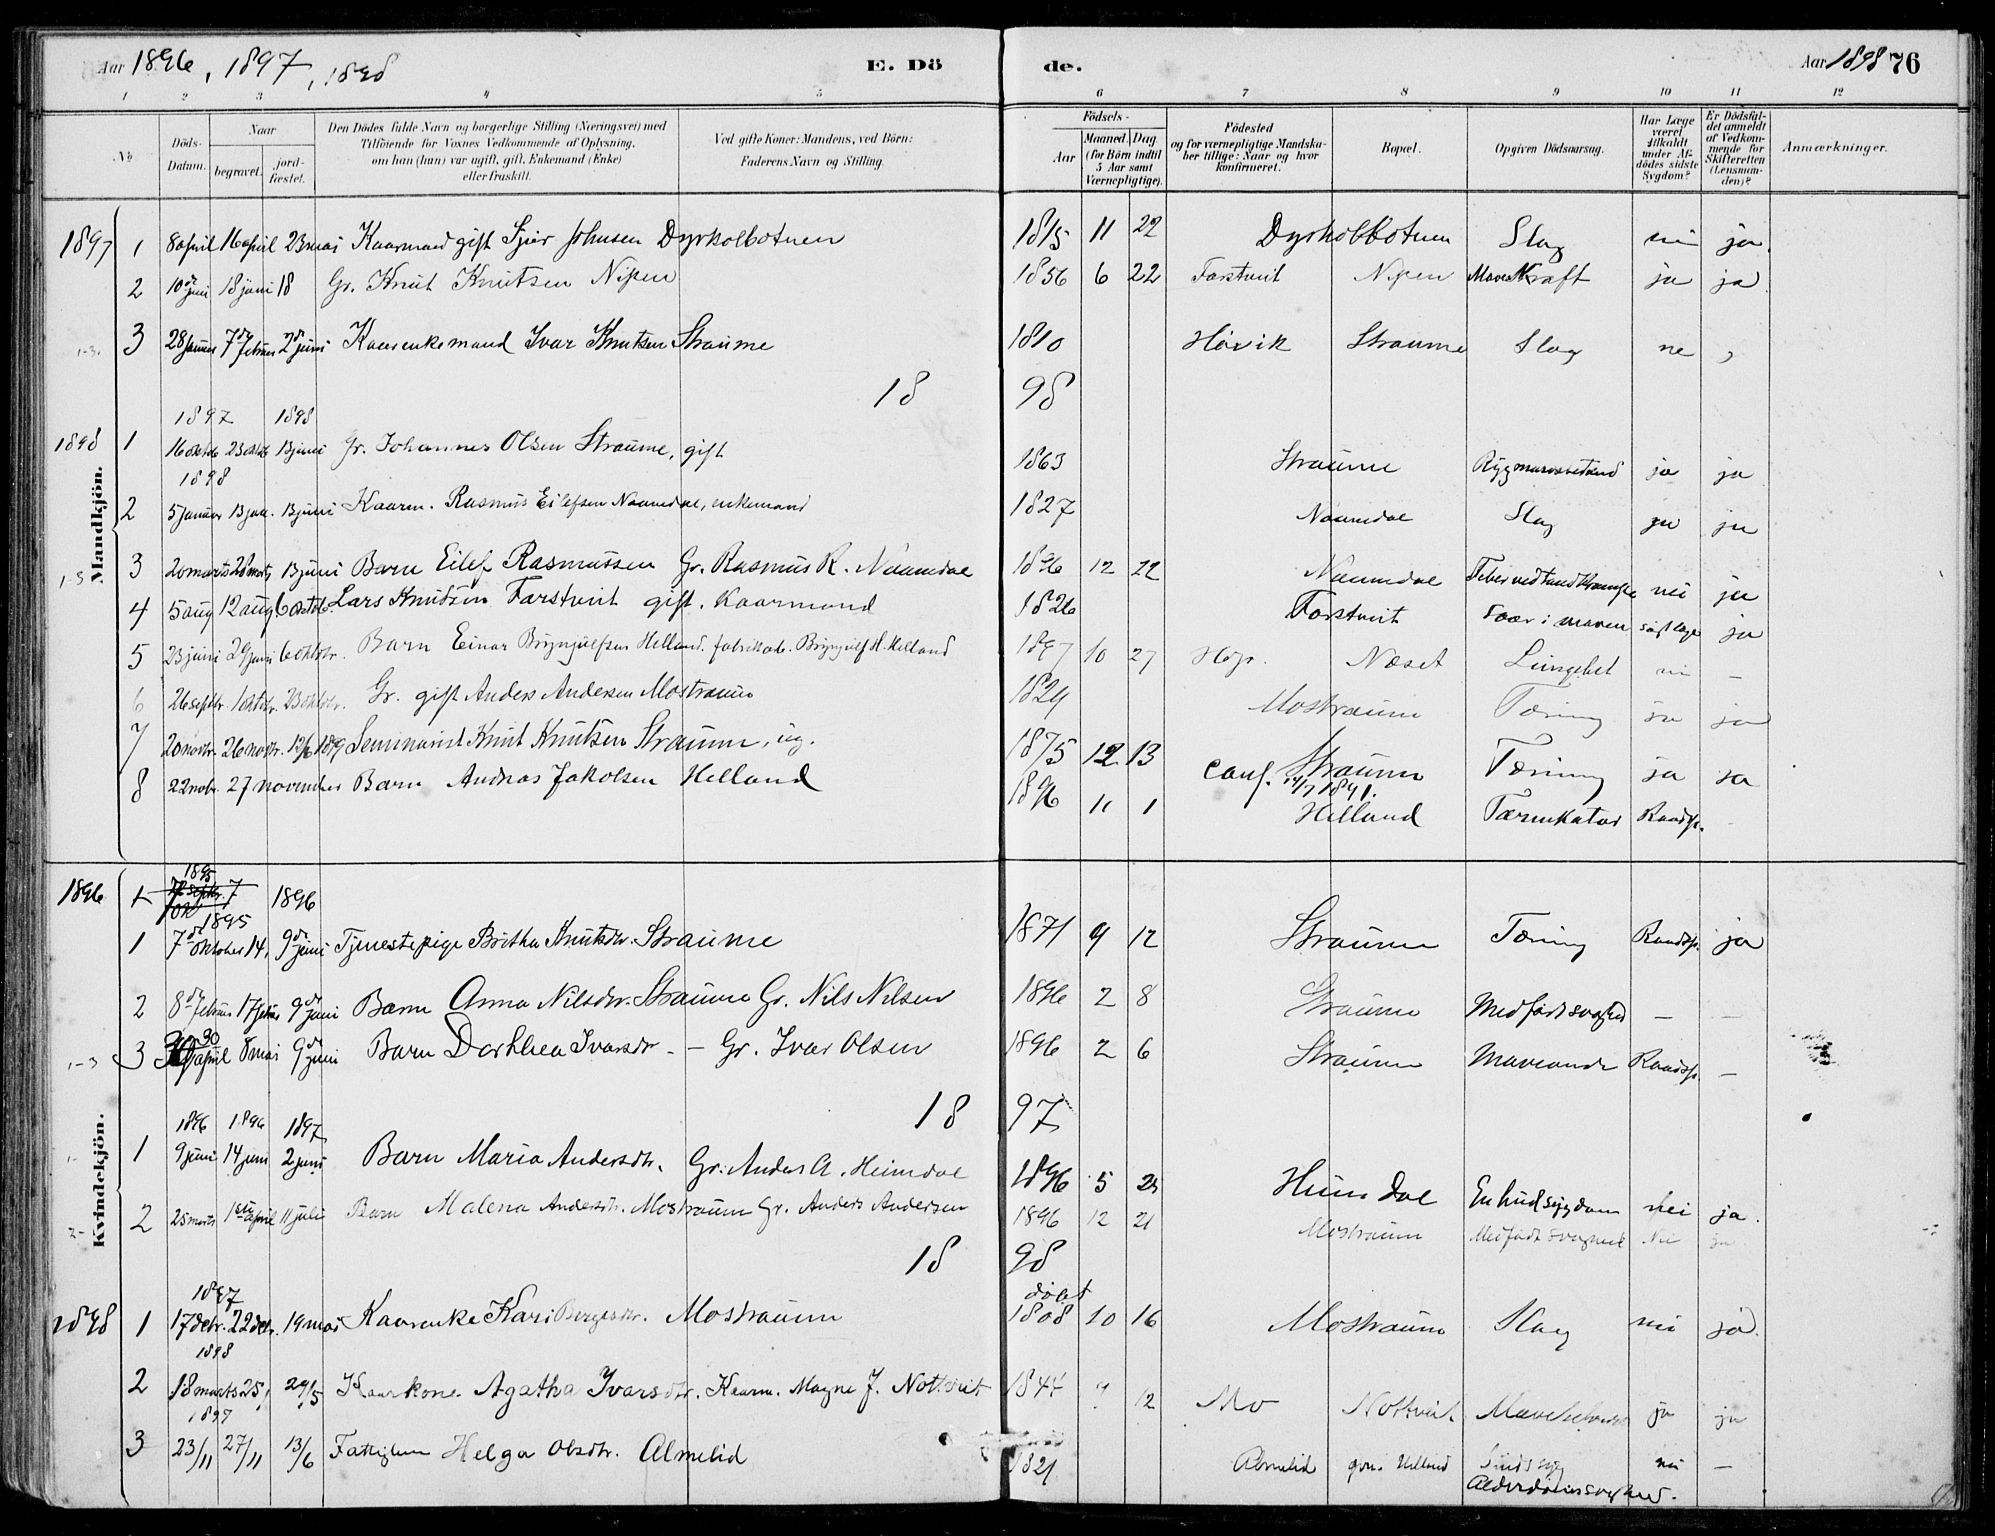 Aar 1896, 1897, 1898 E. Dö de. Aar 1898 76
1 2 3 4 5 6 7 8 9 10 11 12
№ Döds-Datum. Naar begravet. jordfæstet. Den Dödes fulde Navn og borgerlige Stilling (Næringsvei) med Tilföiende for Voxnes Vedkommende af Oplysning, om han (hun) var ugift, gift, Enkemand (Enke) eller fraskilt. Ved gifte Koner: Mandens, ved Börn: Faderens Navn og Stilling. Födsels- Aar Maaned. Dag (for Börn indtil 5 Aar samt Værnepligtige). Födested og for værnepligtige Mandskaber tillige: Naar og hvor konfirmeret. Bopæl. Opgiven Dödsaarsag. Har Læge været tilkaldt under Afdødes sidste Sygdom? Er Dödsfaldet anmeldt af Vedkommende for Skifteretten (Lensmanden)? Anmærkninger.
Mandkjön.
1897 1 8 april 16 april 23 mai Kaarmand gift Johnsen Dyrkolbotnen 1815 11 22 Dyrkolbotnen Slag nei ja.
2 10de juni 18 juni 18 Gr. Knut Knutsen Nipen 1856 6 22 Farstveit Nipen Mavekræft ja ja
1-3. 3 28 januar 7de februar 2de juni Kaarenkemand Ivar Knutsen Straume 1810 Høvik Straume Slag ne
18 98
1897 1898
1898 1 16 oktob 23 oktob 13 juni Gr. Johannes Olsen Straume, gift 1863 Straume ja ja
1898
2 5 januar 13 jan. 13 juni Kaarm. Rasmus Eilefsen Naamdal, enkemand 1827 Naamdal Slag ja ja
1-3 3 20 marts 28 marts 13 juni Barn Eilef Rasmussen Gr. Rasmus R. Naamdal 1896 12 22 Naamdal nei ja
4 5 aug 12 aug 6 oktob. Lars Knudsen Farstveit gift. Kaarmand 1826 Farstveit Saar i maven ja
5 23 juni 29 juni 6 oktobr. Barn Einar Brynjulfsen Helland. fabrikarb. Brynjulf H. Helland 1897 10 27 Næset nei —
6 26 septbr. 1 oktobr. 23 oktobr. Gr. gift Anders Andersen Mostraum 1829 Mostraum Tæring ja ja
7 20 novbr. 26 novbr. Seminarist Knut Knutsen Straume, ug. 1875 12 13 conf. Straume 1891. Tæring ja ja
8 22 nobr. 27 november Barn Andreas Jakobsen Helland 1896 11 1 Helland Tarmkatar Raadsp. —
Kvindekjön.
1896 1895 1896
1895
1 7de oktober 14. 9de juni Tjenestepige Britha Knutsdtr. Straume 1871 9 12 Straume Tæring Raadsp. ja
2 8de februar 17 febr 9de juni Barn Anna Nilsdtr. Straume Gr. Nils Nilsen 1896 2 8 Straume Medfødt svaghed — —
1-3 3 30 april 8 mai 9de juni Barn Dorthea Ivarsdtr. — Gr. Ivar Olsen 1896 2 6 Straume Maveonde Raadsp. —
18 97
1896 1896 1897
1 9 juni 14 juni 2 juni Barn Maria Andersdtr. Gr. Anders A. Heimdal 1896 5 Heimdal En hudsygdom nei ja.
2 25 marts 1ste April 11 juli Barn Malena Andersdtr. Mostraum Gr. Anders Andersen 1896 12 21 Mostraum Medfødt svaghed Nei ja
18 98
1897 døbt
1898 1 17 decbr. 22 decbr. 19 mai Kaarenke Kari Mostraum 1808 10 16 Mostraum Slag nei ja.
1898
2 18 marts 25 29/5 Kaarkone Agatha Ivarsdtr. Kaarm. Magne J. Nottveit 1844 9 12 Mo Nottveit ja ja
1897
3 23/11 27/11 13/6 Fattiglem Helga Olsdtr. Almelid 1821 Almelid grn. Helland Sindssyg nei —
Alderdomssvaghed.